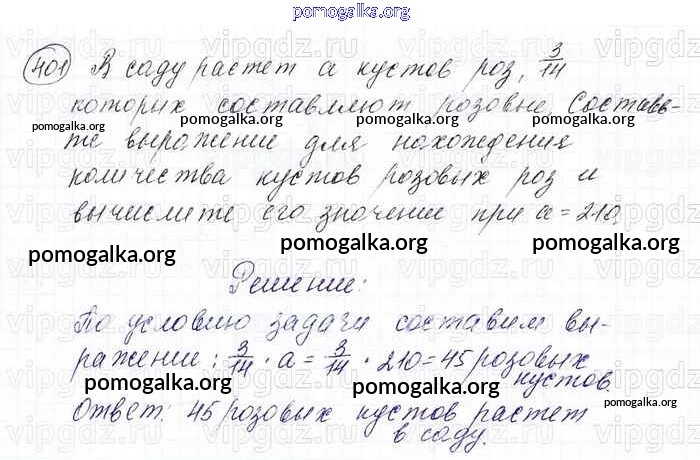 pomogalka.org
401 В саду растет a кустов роз, 3/14
которых составляют розовые. Составь-
pomogalka.org pomogalka.org pomogalka.org pomogalka.org
те выражение для нахождения
количества кустов розовых роз и
вычислите его значение при a = 210.
pomogalka.org pomogalka.org pomogalka.org
Решение:
По условию задачи составим вы-
ражение: 3/14 · a = 3/14 · 210 = 45 розовых
кустов.
pomogalka.org pomogalka.org pomogalka.org
Ответ: 45 розовых кустов растет
в саду.